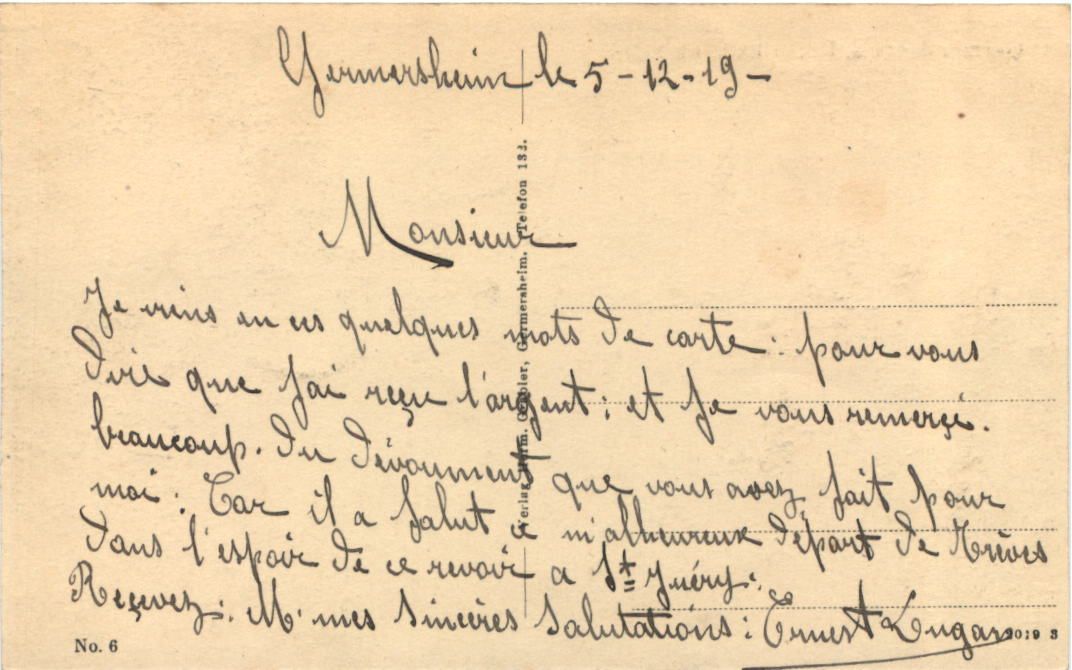 Germersheim le 5-12-19-
Monsieur
Je viens en ces quelques mots de carte: pour vous
dire que Jai reçu l'argent: et Je vous remerçi.
beaucoup. du dévoument que vous avez fait pour
moi: Car il a falut ce m'alheureux départ de Trèves
dans l'espoir de ce revoir a St Juéry.
Reçevez: M. mes Sincères Salutations: Ernest
Verlag Herm. Germersheim. Telefon 132.
No. 6